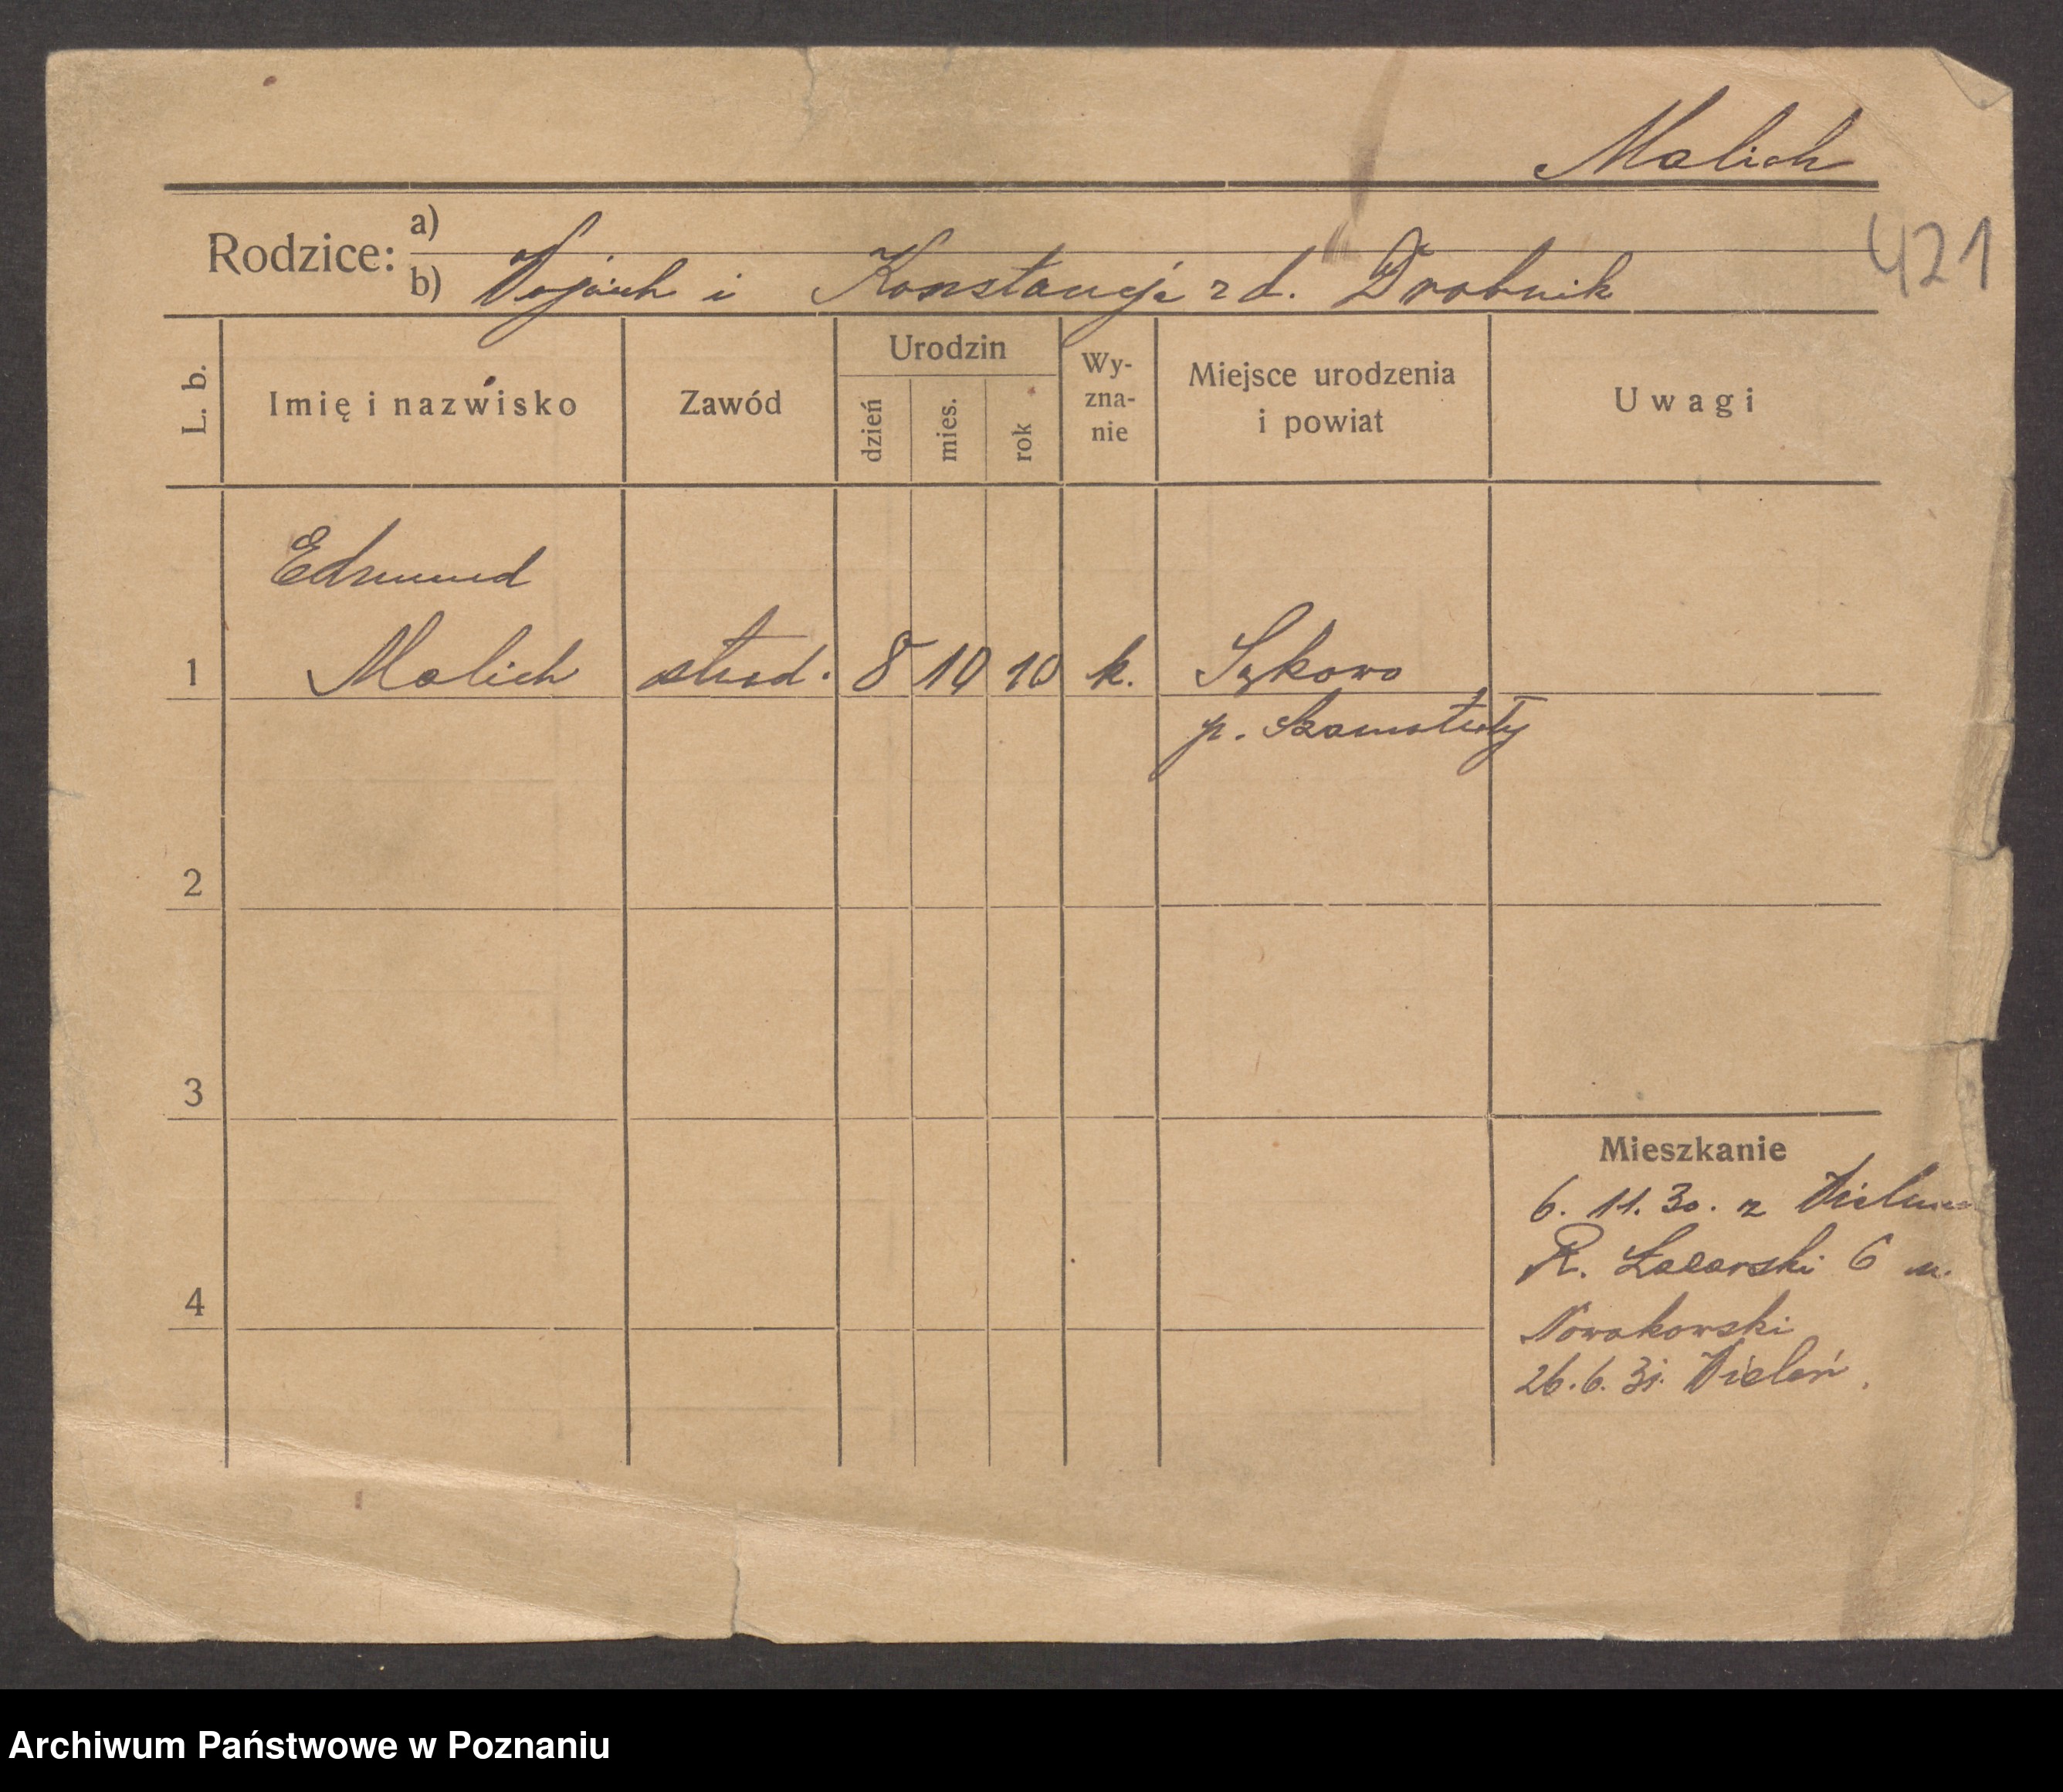 Malich
421
Rodzice:
a)
b) Wojciech i Konstancja z d. Drobnik
L. b.
Imię i nazwisko
Zawód
Urodzin
dzień
mies.
rok
Wy-
zna-
nie
Miejsce urodzenia
i powiat
Uwagi
Edmund
1 Malich stud. 8 10 10 k. Sękowo
p. Szamotuły
2
3
4
Mieszkanie
6. 11. 30. z
R. Łazarski 6 m.
Nowakowski
26. 6. 31. Wieleń.
Archiwum Państwowe w Poznaniu